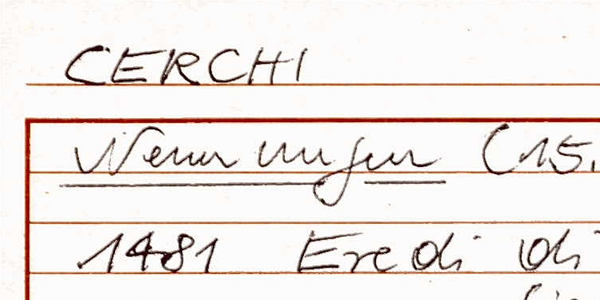 CERCHI
Nennungen (15.
1481 Eredi di